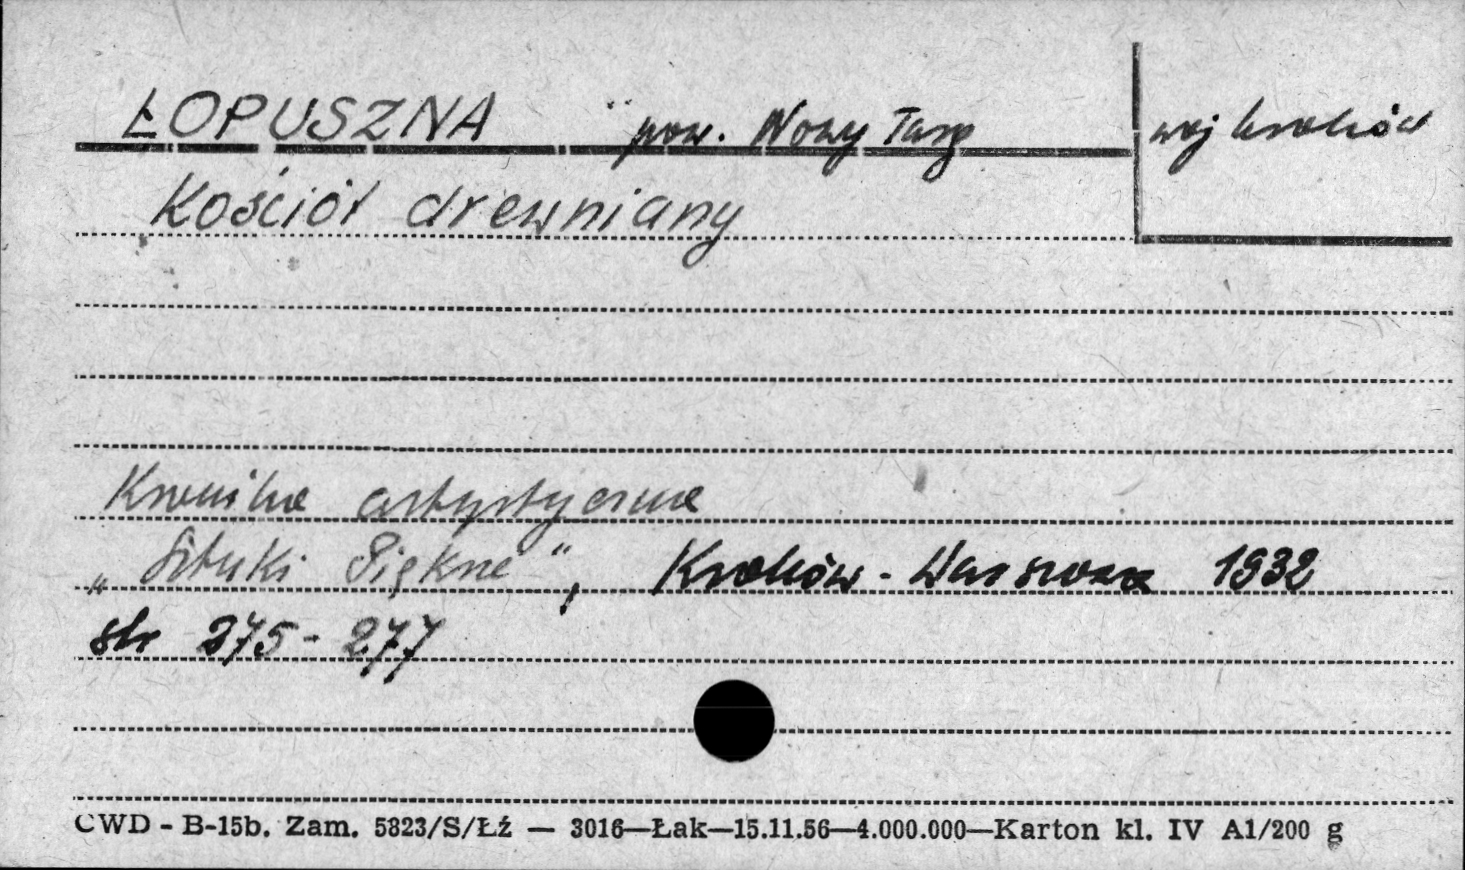 ŁOPUSZNA pow. Nowy Targ woj Kraków
Kościół drewniany
Kronika artystyczna
„Sztuki Piękne", Kraków - Warszawa 1932
str 275-277
CWD - B-15b. Zam. 5823/S/Łź — 3016—Łak—15.11.56—4.000.000—Karton kl. IV A1/200 g